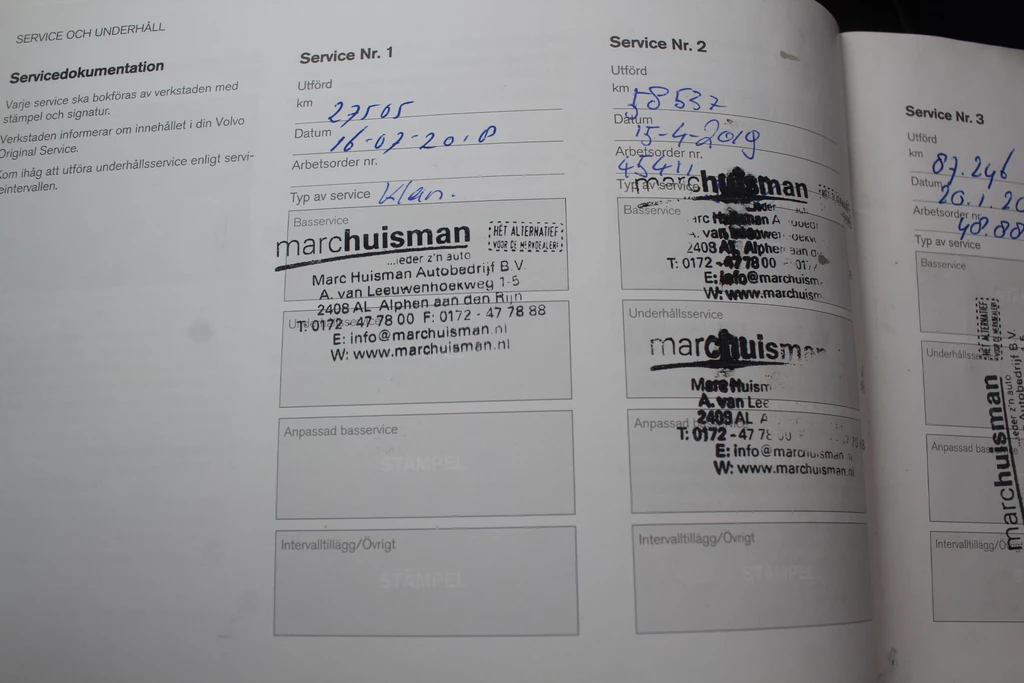 SERVICE OCH UNDERHÅLL
Servicedokumentation
Varje service ska bokföras av verkstaden med
stämpel och signatur.
Verkstaden informerar om innehållet i din Volvo
Original Service.
Kom ihåg att utföra underhållsservice enligt servi-
eintervallen.
Service Nr. 1
Utförd
km 27505
Datum 16-07-2018
Arbetsorder nr.
Typ av service Klan.
Basservice
marchuisman
HÉT ALTERNATIEF
VOOR DE MERKDEALER!
...ieder z'n auto
Marc Huisman Autobedrijf B.V.
A. van Leeuwenhoekweg 1-5
2408 AL Alphen aan den Rijn
T: 0172 - 47 78 00 F: 0172 - 47 78 88
E: info@marchuisman.nl
W: www.marchuisman.nl
Anpassad basservice
STÄMPEL
Intervalltillägg/Övrigt
STÄMPEL
Service Nr. 2
Utförd
km 58537
Datum
15-4-2019
Arbetsorder nr.
45411
Typ av service
marchuisman
Basservice
2408 AL Alphen aan d
T: 0172 - 47 78 00
E: info@marchuism
W: www.marchuism
Underhållsservice
marchuisman
Marc Huism
A. van Lee
2408 AL A
Anpassad
T: 0172 - 47 78 00
E: info@marchuisman.
W: www.marchuisman.nl
Intervalltillägg/Övrigt
STÄMPEL
Service Nr. 3
Utförd
km 87.246
Datum 20.1.20
Arbetsorder nr
48.88
Typ av service
Basservice
HÉT ALTERNATIEF
VOOR DE MERKDEALER!
Underhållsse
marchuisman
...ieder z'n auto
Autobedrijf B.V.
Anpassad bas
Intervalltillägg/Ö